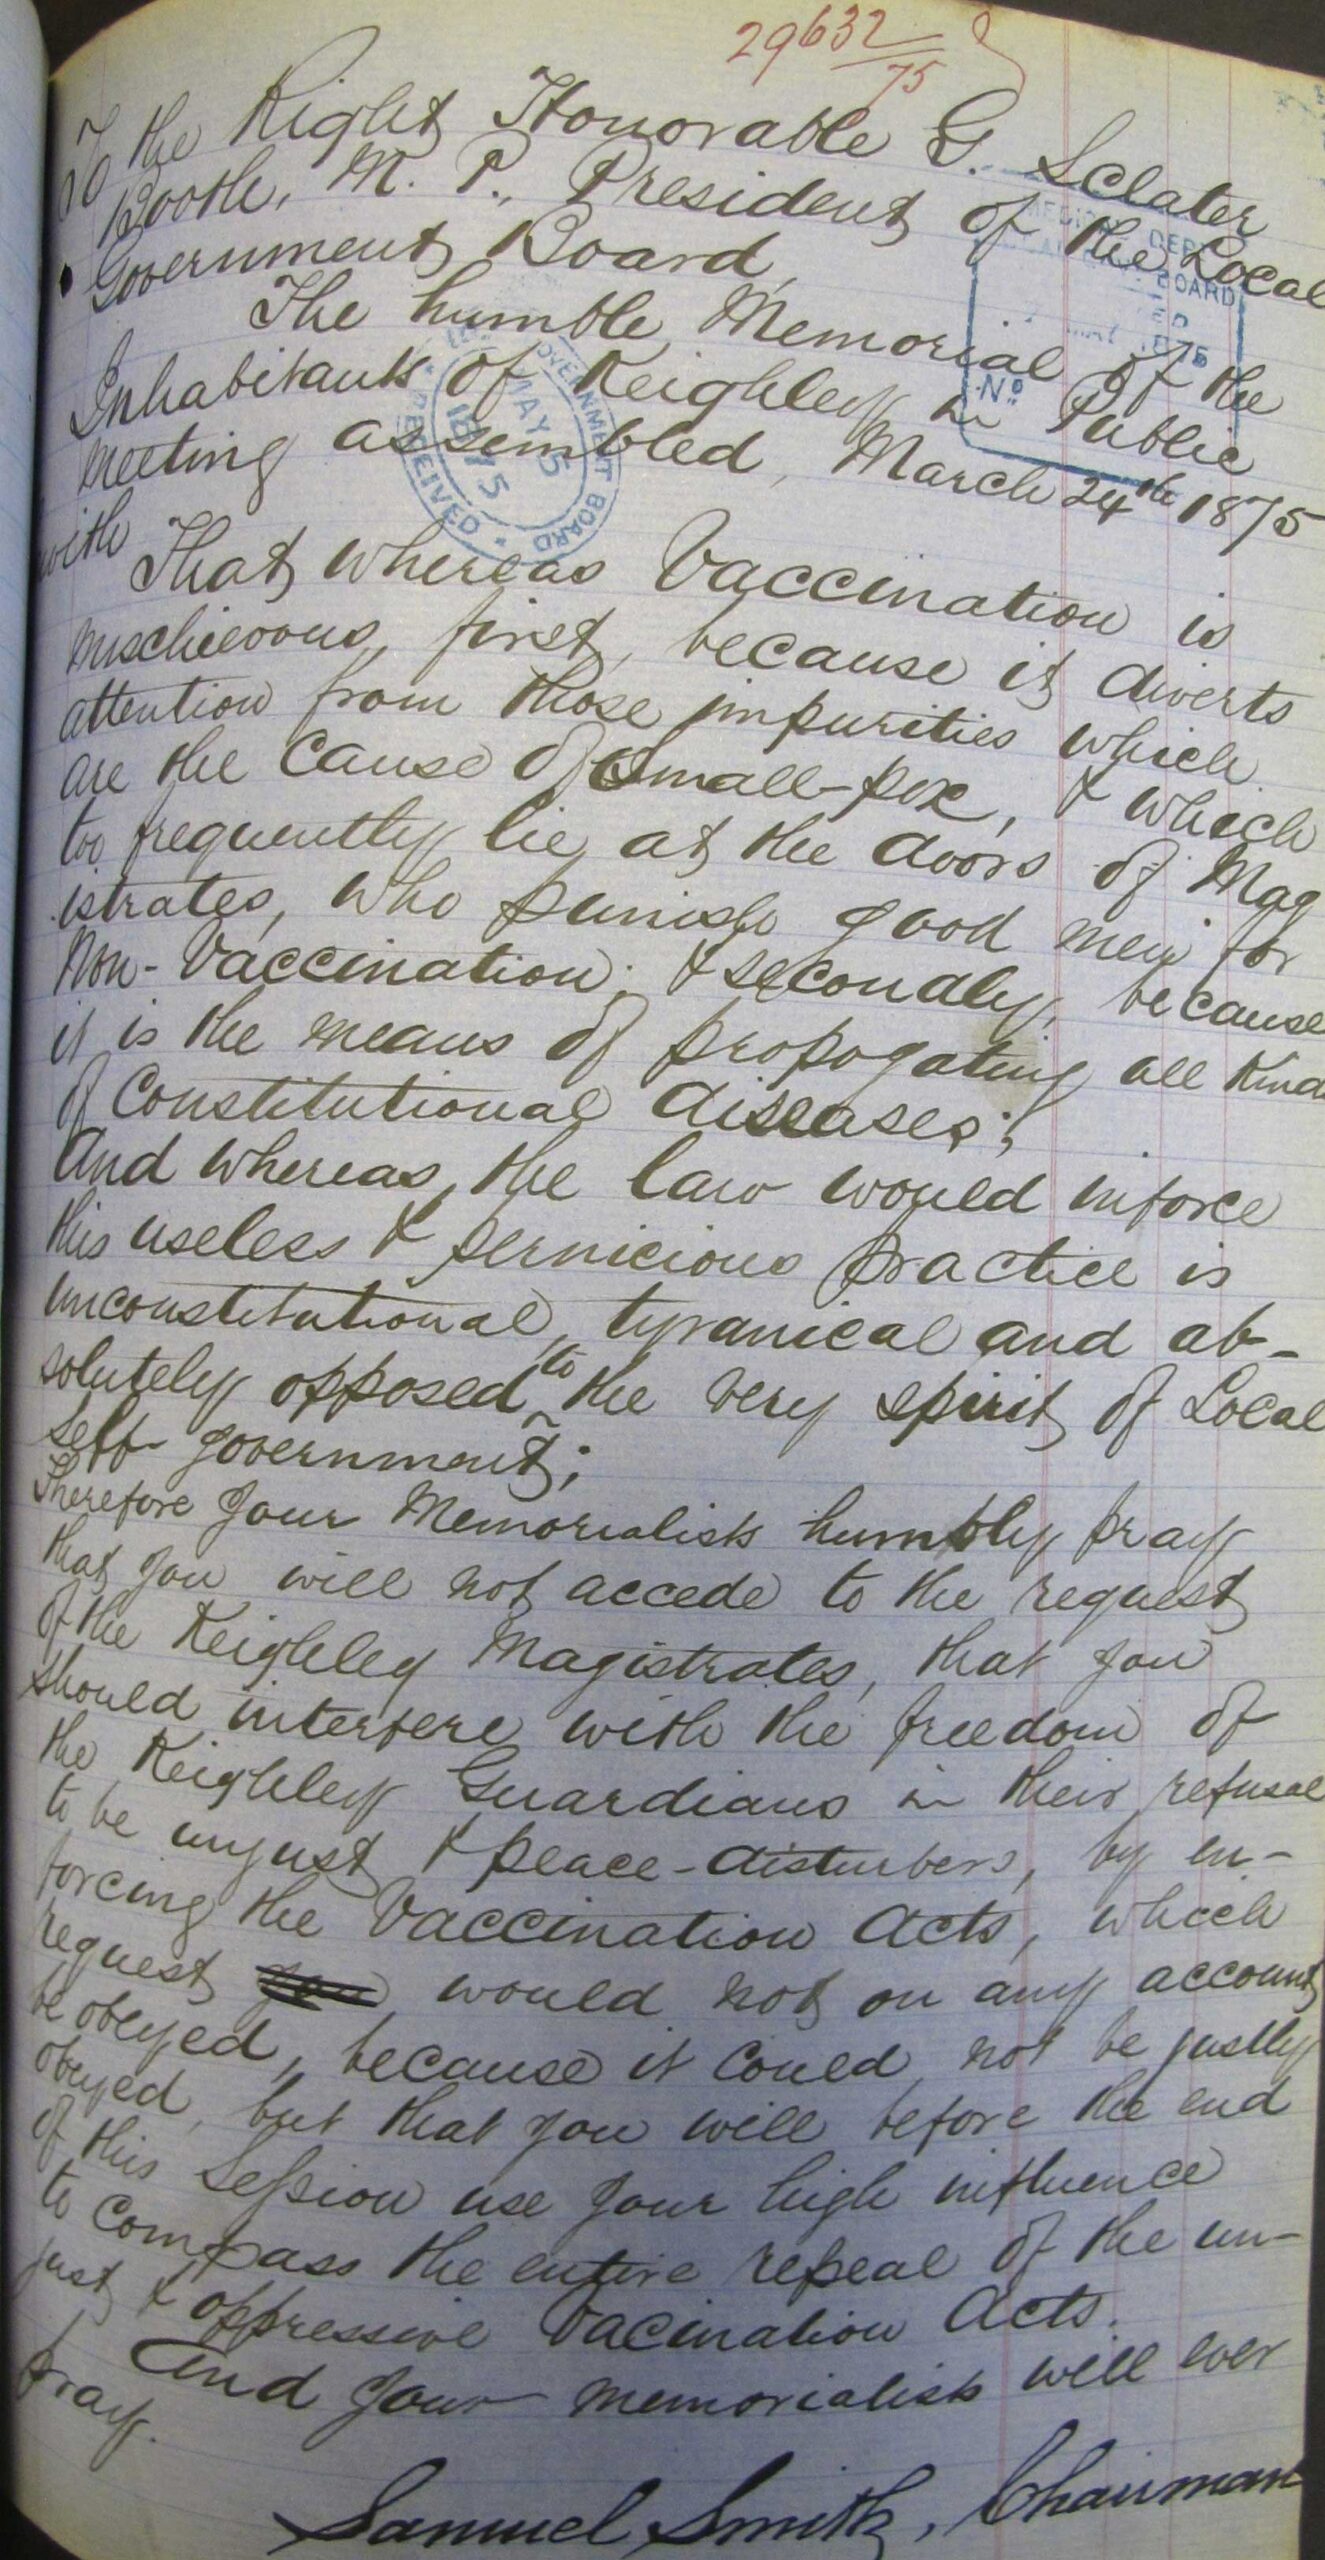 29632/75
To the Right Honorable G. Sclater
Booth, M. P., President of the Local
Government Board,
The humble Memorial of the
Inhabitants of Keighley in Public
Meeting assembled, March 24th 1875
with
That whereas Vaccination is
mischievous, first, because it diverts
attention from those impurities which
are the cause of Small-pox, & which
too frequently lie at the doors of Mag
istrates, who punish good men for
Non-Vaccination; & secondly, because
it is the means of propogating all Kinds
of Constitutional diseases;
And whereas, the law would inforce
this useless & pernicious practice is
unconstitutional, tyranical and ab-
solutely opposed to the very spirit of Local
Self-government;
Therefore your Memorialists humbly pray
that you will not accede to the request
of the Keighley Magistrates, that you
should interfere with the freedom of
the Keighley Guardians in their refusal
to be unjust & peace-disturbers, by en-
forcing the Vaccination Acts, which
request would not on any account
be obeyed, because it could not be justly
obeyed, but that you will before the end
of this Session use your high influence
to compass the entire repeal of the un-
just & oppressive Vacination Acts.
And your memorialists will ever
pray.
Samuel Smith, Chairman
LOCAL GOVERNMENT BOARD
MAY 5
1875
RECEIVED
MEDICAL DEPT
BOARD
1875
No.